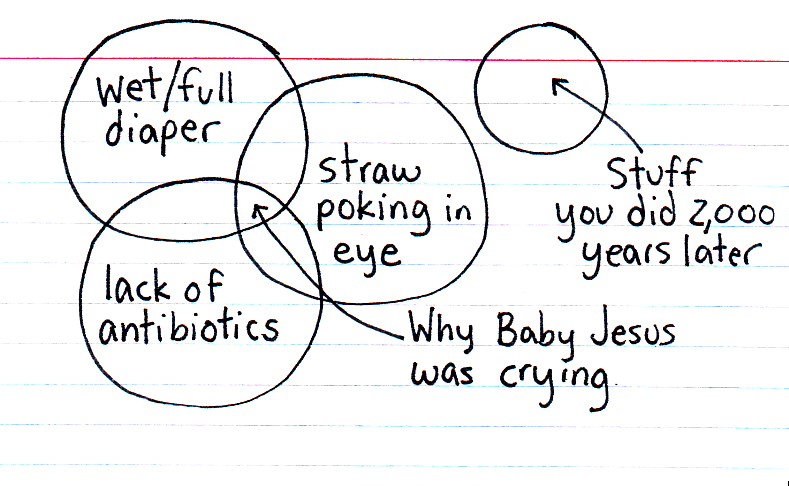 wet/full
diaper
straw
poking in
eye
lack of
antibiotics
Why Baby Jesus
was crying.
Stuff
you did 2,000
years later